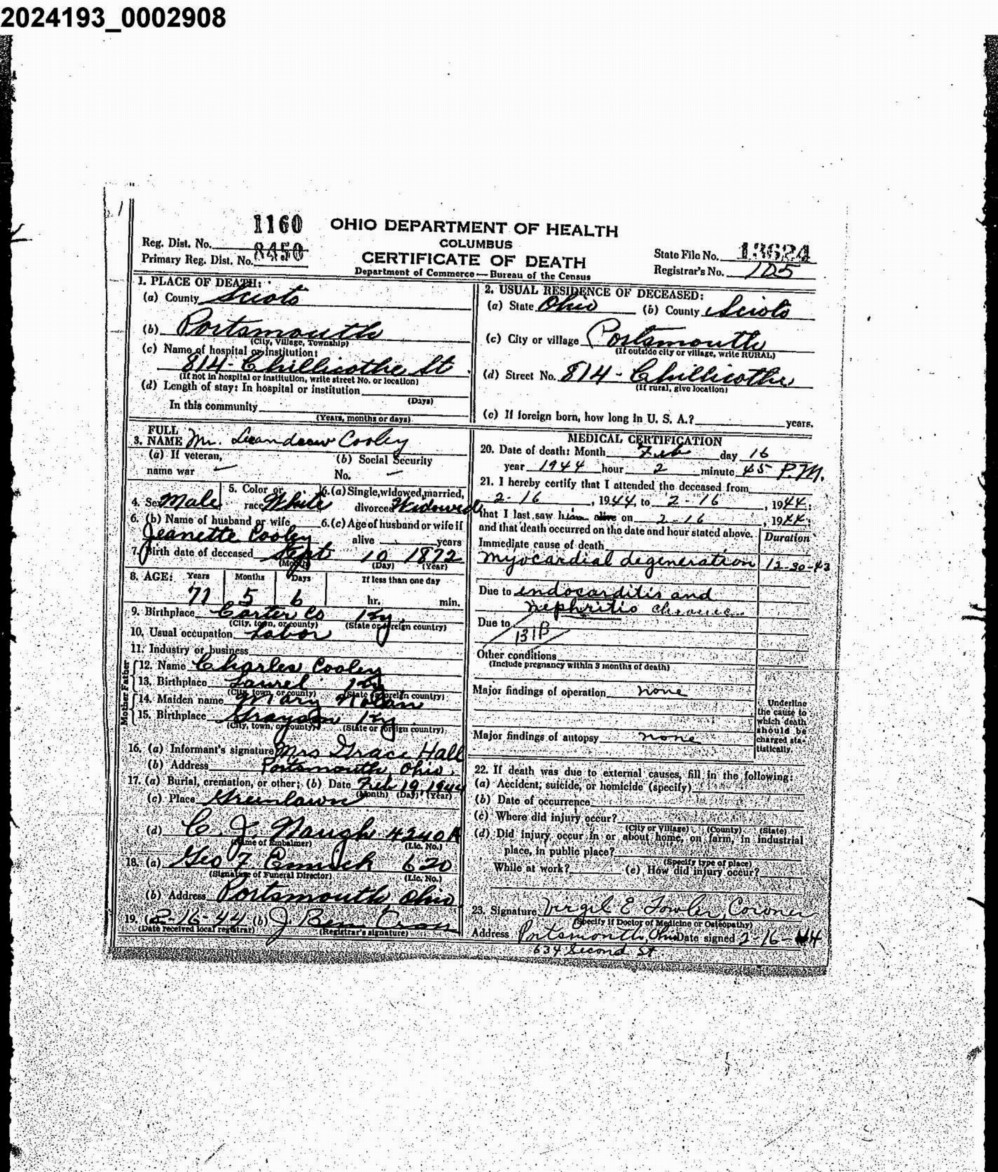 2024193_0002908
1160 OHIO DEPARTMENT OF HEALTH
Reg. Dist. No. COLUMBUS State File No. 13624
Primary Reg. Dist. No. 8450 CERTIFICATE OF DEATH Registrar's No. 105
Department of Commerce — Bureau of the Census
1. PLACE OF DEATH:
(a) County Scioto
(b) Portsmouth
(City, Village, Township)
(c) Name of hospital or institution:
814 - Chillicothe St
(If not in hospital or institution, write street No. or location)
(d) Length of stay: In hospital or institution
(Days)
In this community
(Years, months or days)
2. USUAL RESIDENCE OF DECEASED:
(a) State Ohio (b) County Scioto
(c) City or village Portsmouth
(If outside city or village, write RURAL)
(d) Street No. 814 - Chillicothe
(If rural, give location)
(e) If foreign born, how long in U. S. A.? years.
FULL
3. NAME Mr. Cooley
(a) If veteran, (b) Social Security
name war — No. —
4. Sex Male 5. Color or race White 6. (a) Single, widowed, married, divorced Widowed
6. (b) Name of husband or wife 6. (c) Age of husband or wife if
Jeanette Cooley alive years
7. Birth date of deceased Sept 10 1872
(Month) (Day) (Year)
8. AGE: Years Months Days If less than one day
71 5 6 hr. min.
9. Birthplace Carter Co Ky.
(City, town, or county) (State or foreign country)
10. Usual occupation labor
11. Industry or business
Father
12. Name Charles Cooley
13. Birthplace Laurel Ky
(City, town, or county) (State or foreign country)
Mother
14. Maiden name Mary Nolan
15. Birthplace Grayson Ky
(City, town, or county) (State or foreign country)
16. (a) Informant's signature Mrs Grace Hall
(b) Address Portsmouth Ohio.
17. (a) Burial, cremation, or other; (b) Date Feb 19 1944
(Month) (Day) (Year)
(c) Place Greenlawn
(d) C. J. Waugh 4240A
(Name of Embalmer) (Lic. No.)
18. (a) Geo 620
(Signature of Funeral Director) (Lic. No.)
(b) Address Portsmouth Ohio
19. (a) 2-16-44 (b) J
(Date received local registrar) (Registrar's signature)
MEDICAL CERTIFICATION
20. Date of death: Month Feb day 16
year 1944 hour 2 minute 45 P.M.
21. I hereby certify that I attended the deceased from
2-16, 1944, to 2-16, 1944;
that I last saw him alive on 2-16, 1944;
and that death occurred on the date and hour stated above. Duration
Immediate cause of death
Myocardial degeneration 12-30-43
Due to endocarditis and
nephritis chronic
Due to 131B
Other conditions
(Include pregnancy within 3 months of death)
Major findings of operation none
Major findings of autopsy none
Underline
the cause to
which death
should be
charged sta-
tistically.
22. If death was due to external causes, fill in the following:
(a) Accident, suicide, or homicide (specify)
(b) Date of occurrence
(c) Where did injury occur?
(City or Village) (County) (State)
(d) Did injury occur in or about home, on farm, in industrial
place, in public place?
(Specify type of place)
While at work? (e) How did injury occur?
23. Signature Virgil E Fowler, Coroner
(Specify if Doctor of Medicine or Osteopathy)
Address Portsmouth, Ohio Date signed 2-16-44
634 Second St.